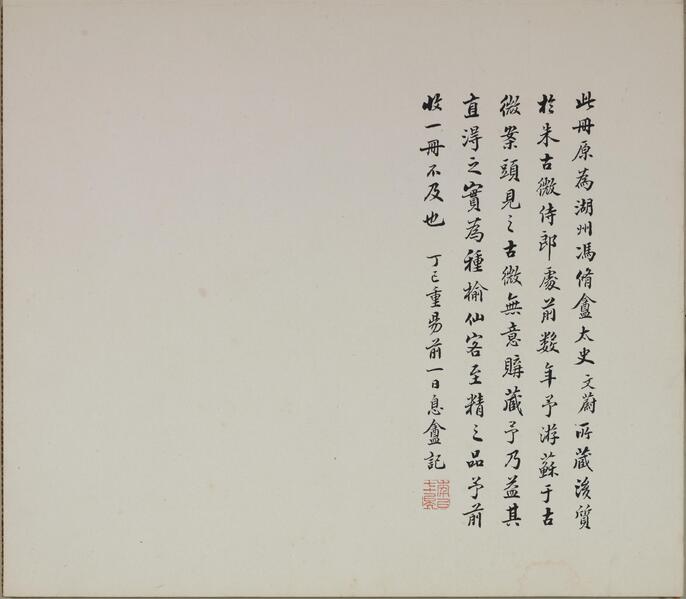 此冊原為湖州馮脩盦太史文蔚所藏後質
於朱古微侍郎處前數年予游蘇于古
微案頭見之古微無意購藏予乃益其
直得之實為種榆仙客至精之品予前
收一冊不及也 丁巳重昜前一日息盦記